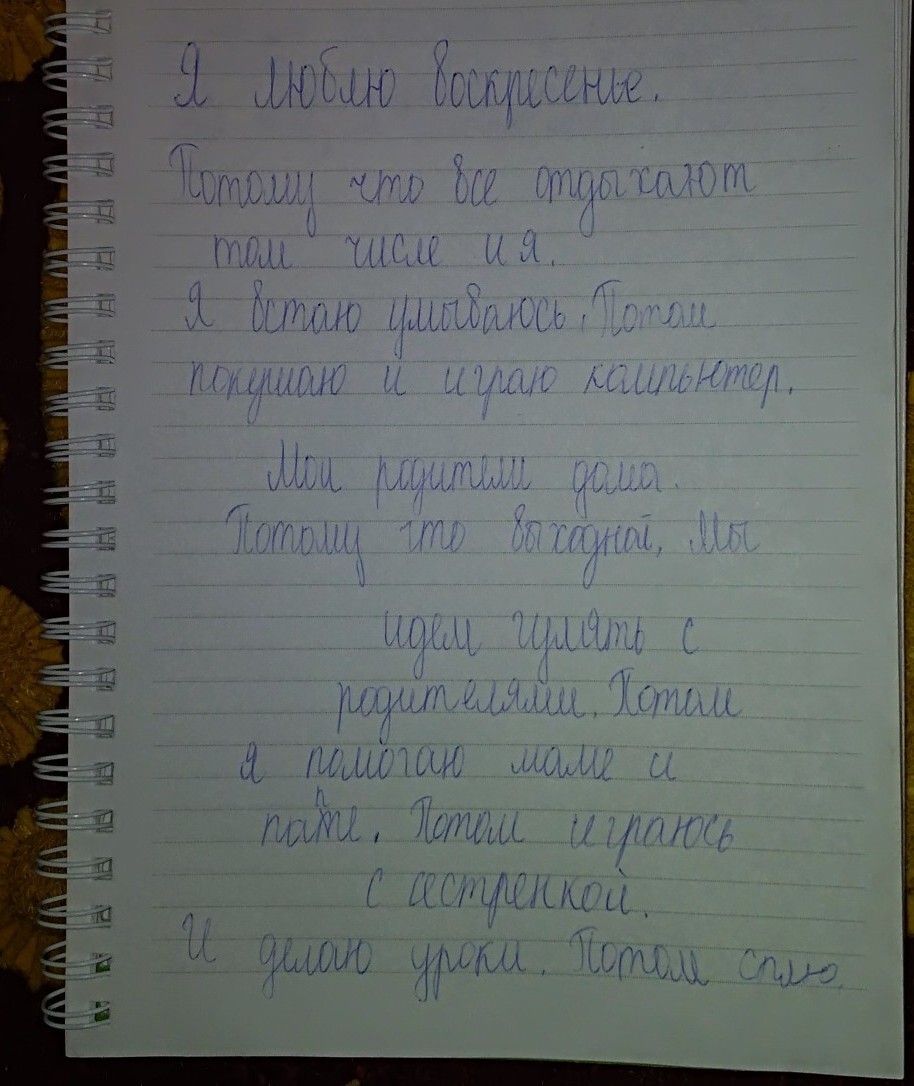 Я люблю воскресенье.
Потому что все отдыхают
том числе и я.
Я встаю умываюсь. Потом
покушаю и играю компьютер.
Мои родители дома.
Потому что выходной, Мы
идем гулять с
родителями. Потом
я помогаю маме и
папе. Потом играюсь
с сестренкой.
И делаю уроки. Потом сплю.